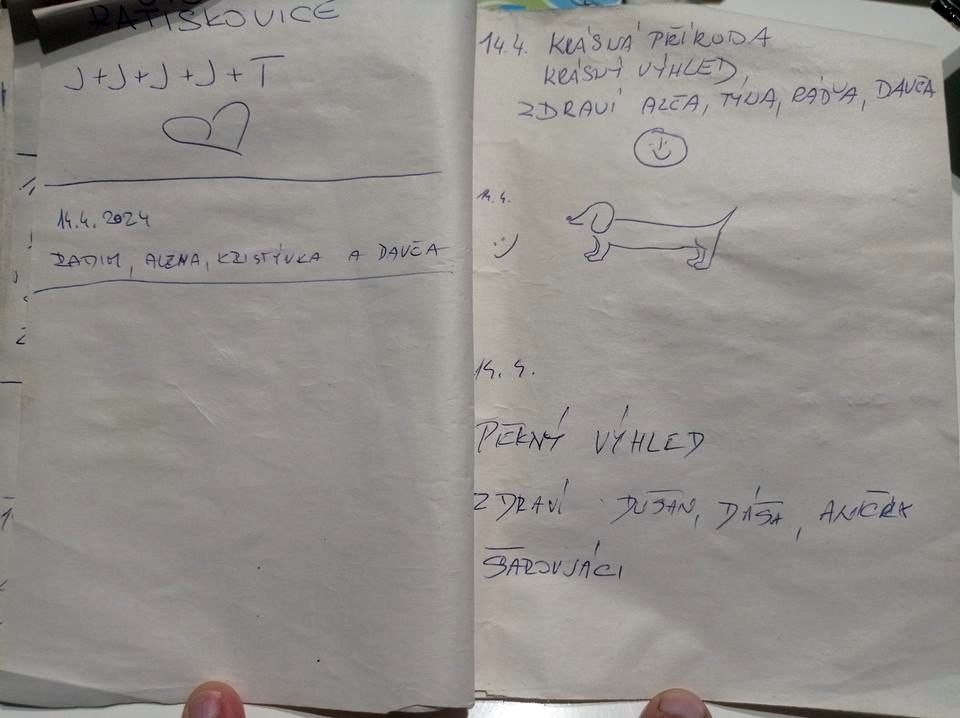 RATÍŠKOVICE
J+J+J+J+T
14.4.2024
RADIM, ALENA, KRISTÝNKA A DAVČA
14.4. KRÁSNÁ PŘÍRODA
KRÁSNÝ VÝHLED,
ZDRAVÍ ALČA, TÝNA, RÁĎA, DAVČA
14.4.
:)
14.4.
PĚKNÝ VÝHLED
ZDRAVÍ DUŠAN, DÁŠA, ANIČKA